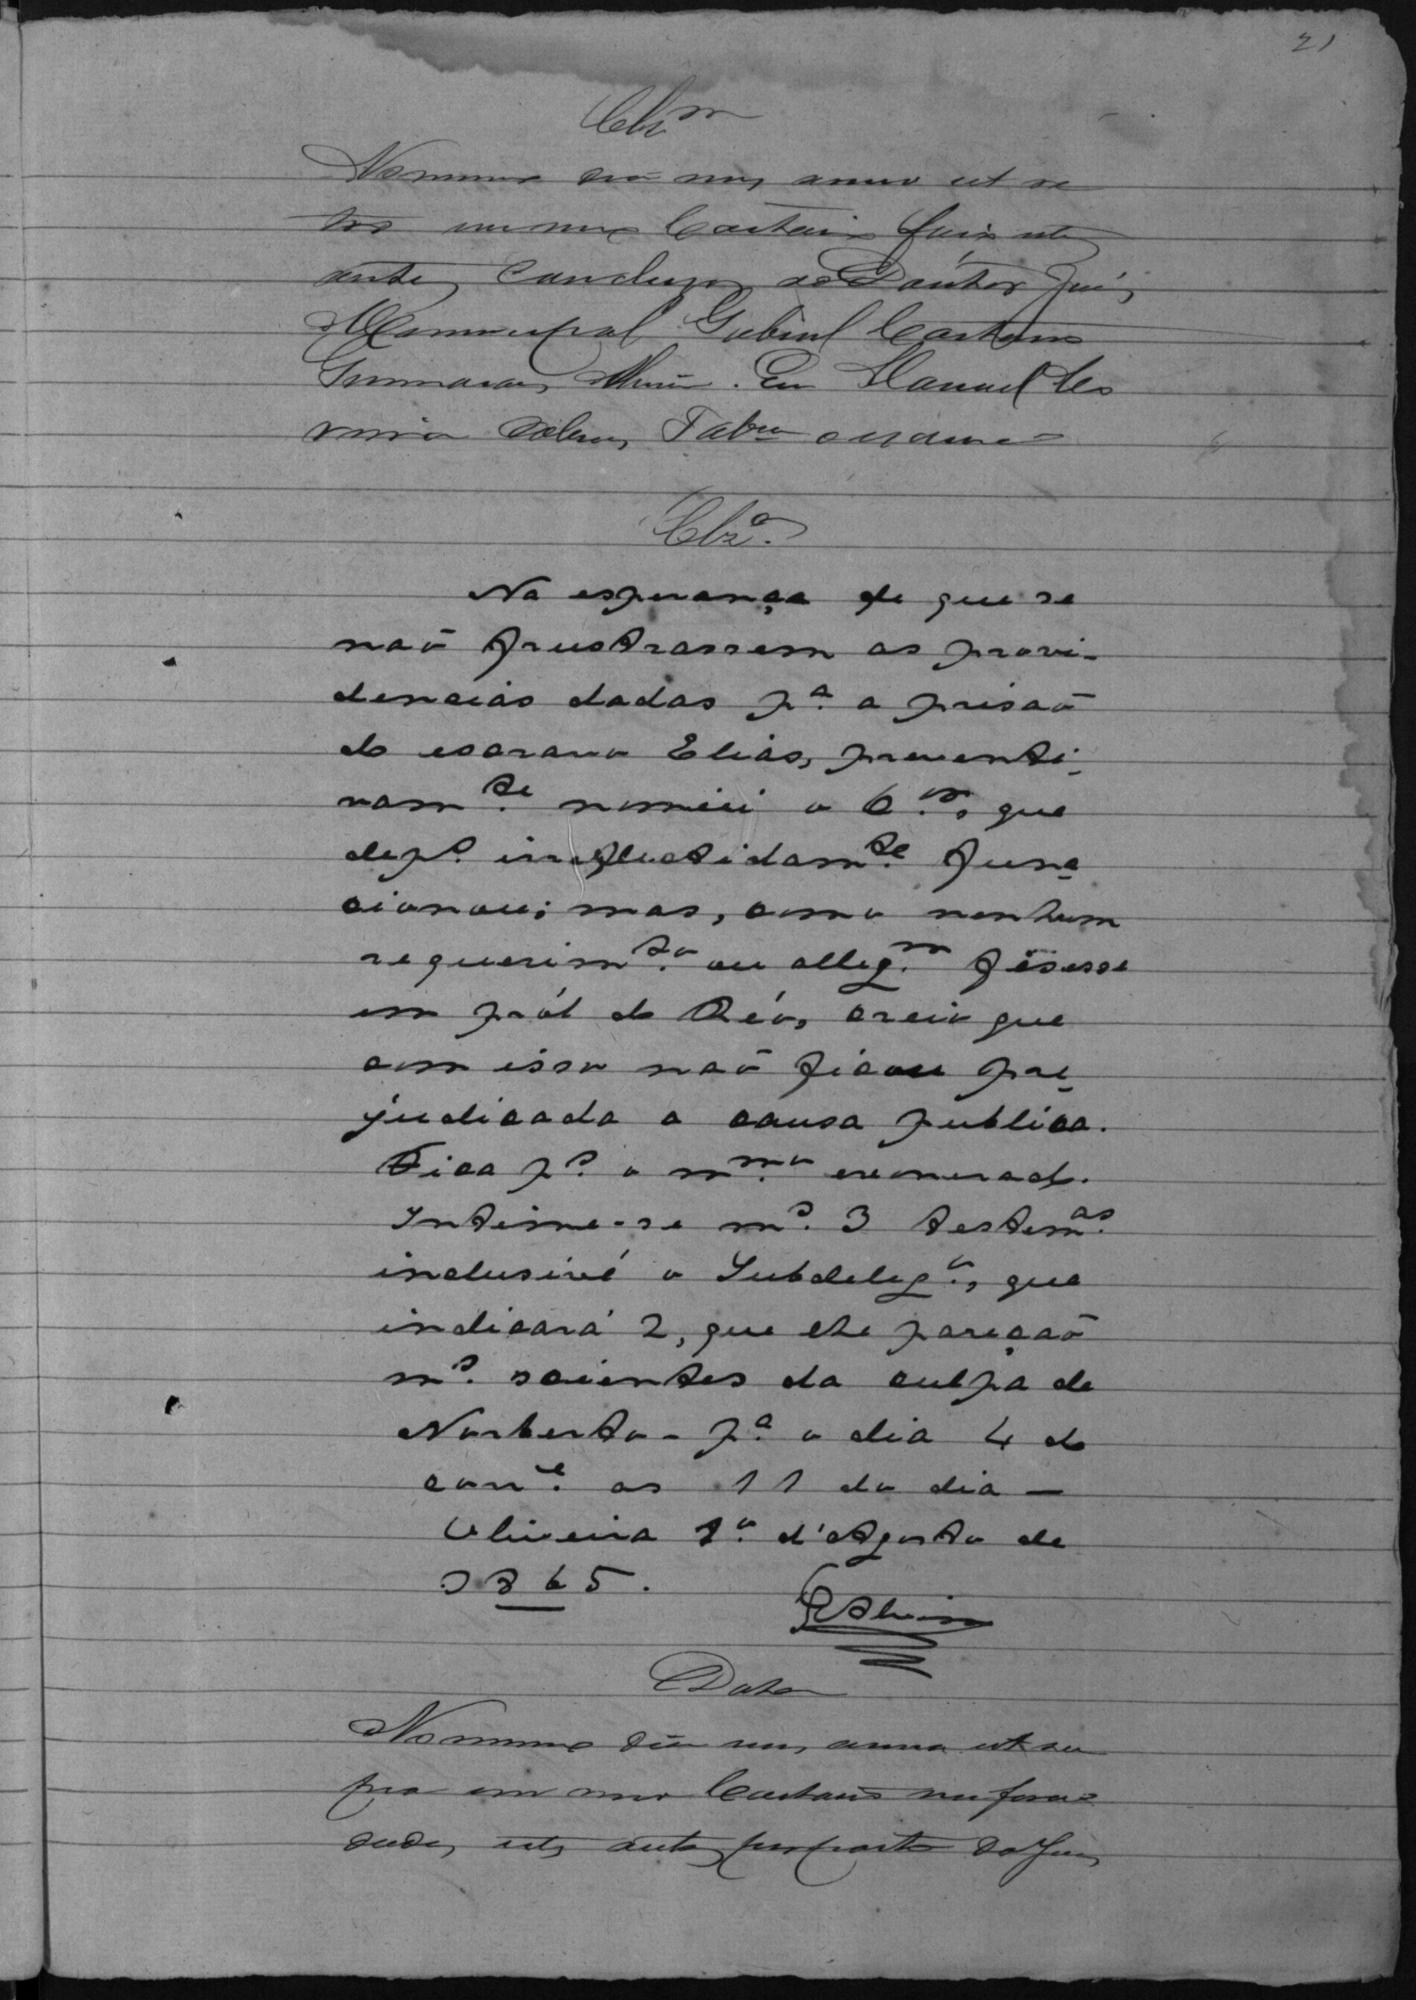 21
Clz.m
No mesmo dia mes anno ut re
tro em meo Cartorio faço estes
autos conclusos ao Doutor Juis
Municipal Gabriel Caetano
Guimarães Alvim. Eu Manoel
Tab.am o escrevi
Clz.o
Na esperança de que se
naõ frustrassem as provi-
dencias dadas p.a a prisaõ
do escravo Elias, preventi-
vam.te nomiei o C.or, que
dep.s irreflectidam.te func
cionou; mas, como nenhum
requerim.to ou alleg.m fisesse
em ról do Réo, creio que
com isso naõ ficou pre-
judicada a causa publica.
Fica p.s o m.mo exonerado.
Intime-se m.s 3 testem.as
inclusivé o Subdeleg.o, que
indicará 2, que lhe pareçaõ
m.s scientes da culpa de
Norberto - p.a o dia 4 do
corr.e as 11 do dia -
Oliveira 1.o d'Agosto de
1865.
GAlvim
Data
No mesmo dia mes anno ut su
pra em meo Cartorio me foraõ
dados estes autos por parte do Juis